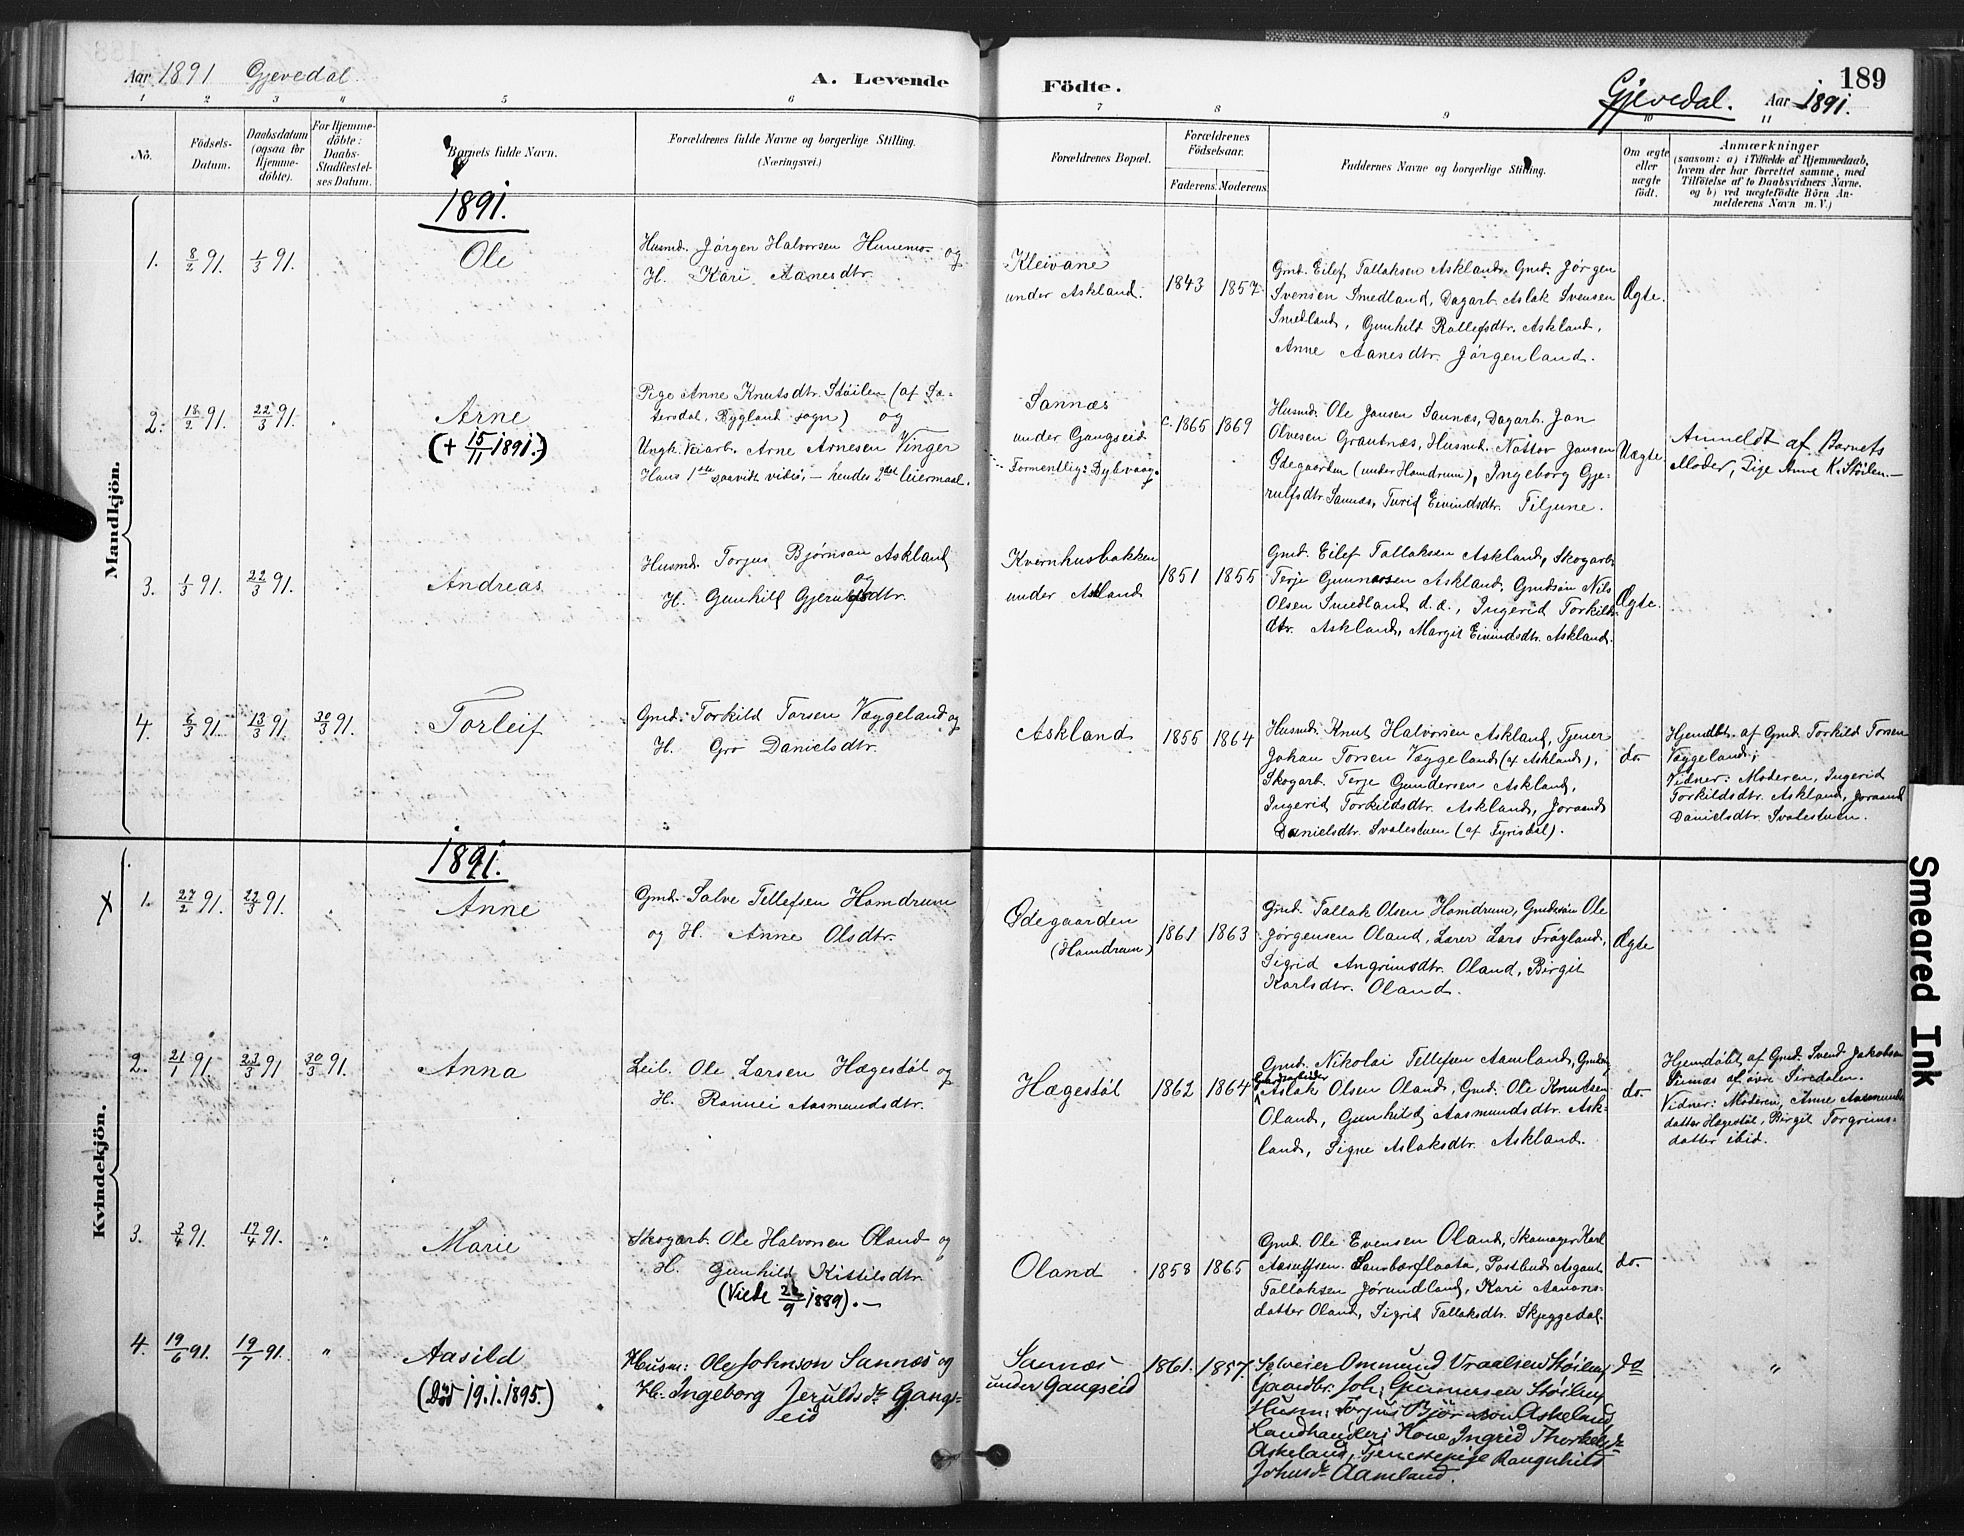 Aar 1891 Gjevedal.
A. Levende
Födte.
Gjevedal.
Aar 1891.
189
1 2 3 4 5 6 7 8 9 10 11
No.
Födsels-
Datum.
Daabsdatum
(ogsaa for
Hjemme-
döbte).
For Hjemme-
döbte:
Daabs-
Stadfæstel-
ses Datum.
Barnets fulde Navn.
Forældrenes fulde Navne og borgerlige Stilling.
(Næringsvei.)
Forældrenes Bopæl.
Forældrenes
Födselsaar.
Faderens. Moderens.
Faddernes Navne og borgerlige Stilling.
Om ægte
eller
uægte
födt.
Anmærkninger
(saasom: a) i Tilfælde af Hjemmedaab,
hvem der har forrettet samme, med
Tilföielse af to Daabsvidners Navne.
og b) ved uægtefödte Börn An-
melderens Navn m. V.)
Mandkjön.
1891.
1. 8/2 91. 1/3 91.
Ole
Husmd. Jörgen Halvorsen og
H. Kari Aanesdtr.
Kleivane
under Askland.
1843 1857
Gmd. Eilef Tallaksen Askland, Gmd. Jörgen
Svensen Smedland, Dagarb. Aslak Svensen
Smedland, Gunhild Rollefsdtr. Askland,
Anne Aanesdtr. Jörgenland.
Ægte.
2. 18/2 91. 22/3 91.
Arne
(+ 15/11 1891.)
Pige Anne Knutsdtr. Stöilen (af Sæ-
tersdal, Bygland sogn) og
Ungk. Veiarb. Arne Arnesen Vinger
Hans 1ste saavidt vides, – hendes 2det leiermaal.
Sannæs
under Gangseid
Formentlig: Dybvaag
c. 1865 1869
Husmd. Ole Jansen Sannæs, Dagarb. Jan
Olvesen Grautnæs, Husmd. Nottov Jansen
Ødegaarden (under Hamdrum), Ingeborg Gje-
rulfsdtr Sannæs, Turid Eivindsdtr. Tiljune.
Uægte.
Anmeldt af Barnets
Moder, Pige Anne K. Stöilen –
3. 1/3 91. 22/3 91.
Andreas
Husmd. Torjus Björnson Askland
og
H. Gunhild Gjerulfsdtr.
Kvernhusbakken
under Askland
1851 1855
Gmd. Eilef Tallaksen Askland, Skogarb.
Terje Gunnarsen Askland, Gmdsön Nils
Olsen Smedland d. æ., Ingerid Torkilds-
dtr. Askland, Margit Eivindsdtr. Askland.
Ægte.
4. 6/3 91. 13/3 91. 30/3 91.
Torleif
Gmd. Torkild Torsen Væggeland og
H. Gro Danielsdtr.
Askland
1855 1864
Husmd. Knut Halvorsen Askland, Tjener
Johan Torsen Væggeland (af Askland),
Skogarb. Terje Gundersen Askland,
Ingerid Torkildsdtr. Askland, Joraand
Danielsdtr. Svalestuen (af Fyrisdal).
do.
Hjemdbt. af Gmd. Torkild Torsen
Væggeland;
Vidner: Moderen, Ingerid
Torkildsdtr. Askland, Joraand
Danielsdtr. Svalestuen.
Kvindekjön.
1891.
X 1. 27/2 91. 22/3 91.
Anne
Gmd. Salve Tellefsen Hamdrum
og H. Anne Olsdtr.
Ødegaarden
(Hamdrum)
1861 1863
Gmd. Tallak Olsen Hamdrum, Gmdssön Ole
Jörgensen Oland, Lærer Lars Fröyland,
Sigrid Angrimsdtr. Oland, Birgit
Karlsdtr. Oland.
Ægte
2. 21/1 91. 23/3 91 30/3 91.
Anna
Leil. Ole Larsen Hægestöl og
H. Rannei Aasmundsdtr.
Hægestöl
1862 1864
Gmd. Nikolai Tellefsen Aamland,
Aslak Olsen Oland, Gmd. Ole Knutsen
Oland, Gunhild Aasmundsdtr. Ask-
land, Signe Aslaksdtr. Askland.
do.
Hjemdöbt af Gmd. Svend Jakobsen
Sinnæs af övre Siredalen.
Vidner: Moderen, Anne Aasmunds-
datter Hægestöl, Birgit Torgrims-
datter ibid.
3. 3/4 91. 19/4 91. "
Marie
Skogarb. Ole Halvorsen Oland og
H. Gunhild Kittilsdtr.
(Viede 22/9 1889). –
Oland
1858 1865
Gmd. Ole Evensen Oland, Skomager Karl
Aasulfsen Laurbærflaata, Postbud Asgaut
Tallaksen Jörundland, Kari Aanons-
datter Oland, Sigrid Tallaksdtr. Skjeggedal.
do.
4. 19/6 91. 19/7 91. "
Aasild
(Död 19.1.1895.)
Husm: Ole Johnson Sannæs og
H. Ingeborg Jerulfsdr Gangs-
eid
Sannæs
under Gangseid
1861. 1857.
Selveier Ommund Vraalsen Stöiling
Gaardbr. Joh: Gunnersen Stöiling
Husm: Torjus Björnson Askeland
Landhandleri Kone Ingrid Thorkelsdr
Askeland, Tjenestepige Rangnhild
Johusdr Aamland.
do
"
Smeared Ink